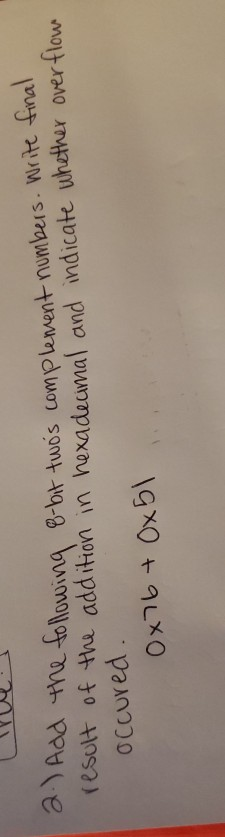 2.) Add the following 8-bit two's complement numbers. Write final
result of the addition in hexadecimal and indicate whether overflow
occured.
0x7b + 0x51